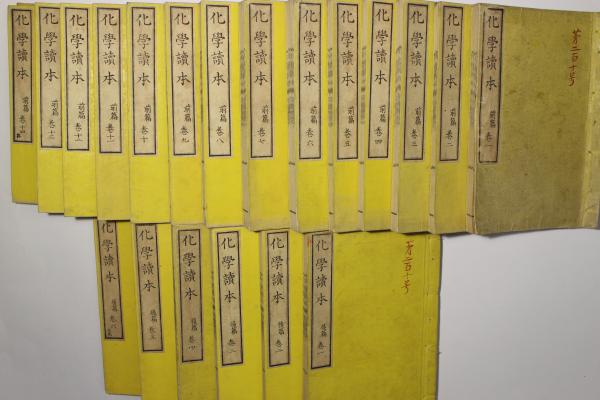 第二百十号
化學讀本 前篇 卷一
化學讀本 前篇 卷二
化學讀本 前篇 卷三
化學讀本 前篇 卷四
化學讀本 前篇 卷五
化學讀本 前篇 卷六
化學讀本 前篇 卷七
化學讀本 前篇 卷八
化學讀本 前篇 卷九
化學讀本 前篇 卷十
化學讀本 前篇 卷十一
化學讀本 前篇 卷十二
化學讀本 前篇 卷十三
化學讀本 前篇 卷十四
第二百十号
化學讀本 後篇 卷一
化學讀本 後篇 卷二
化學讀本 後篇 卷三
化學讀本 後篇 卷四
化學讀本 後篇 卷五
化學讀本 後篇 卷六